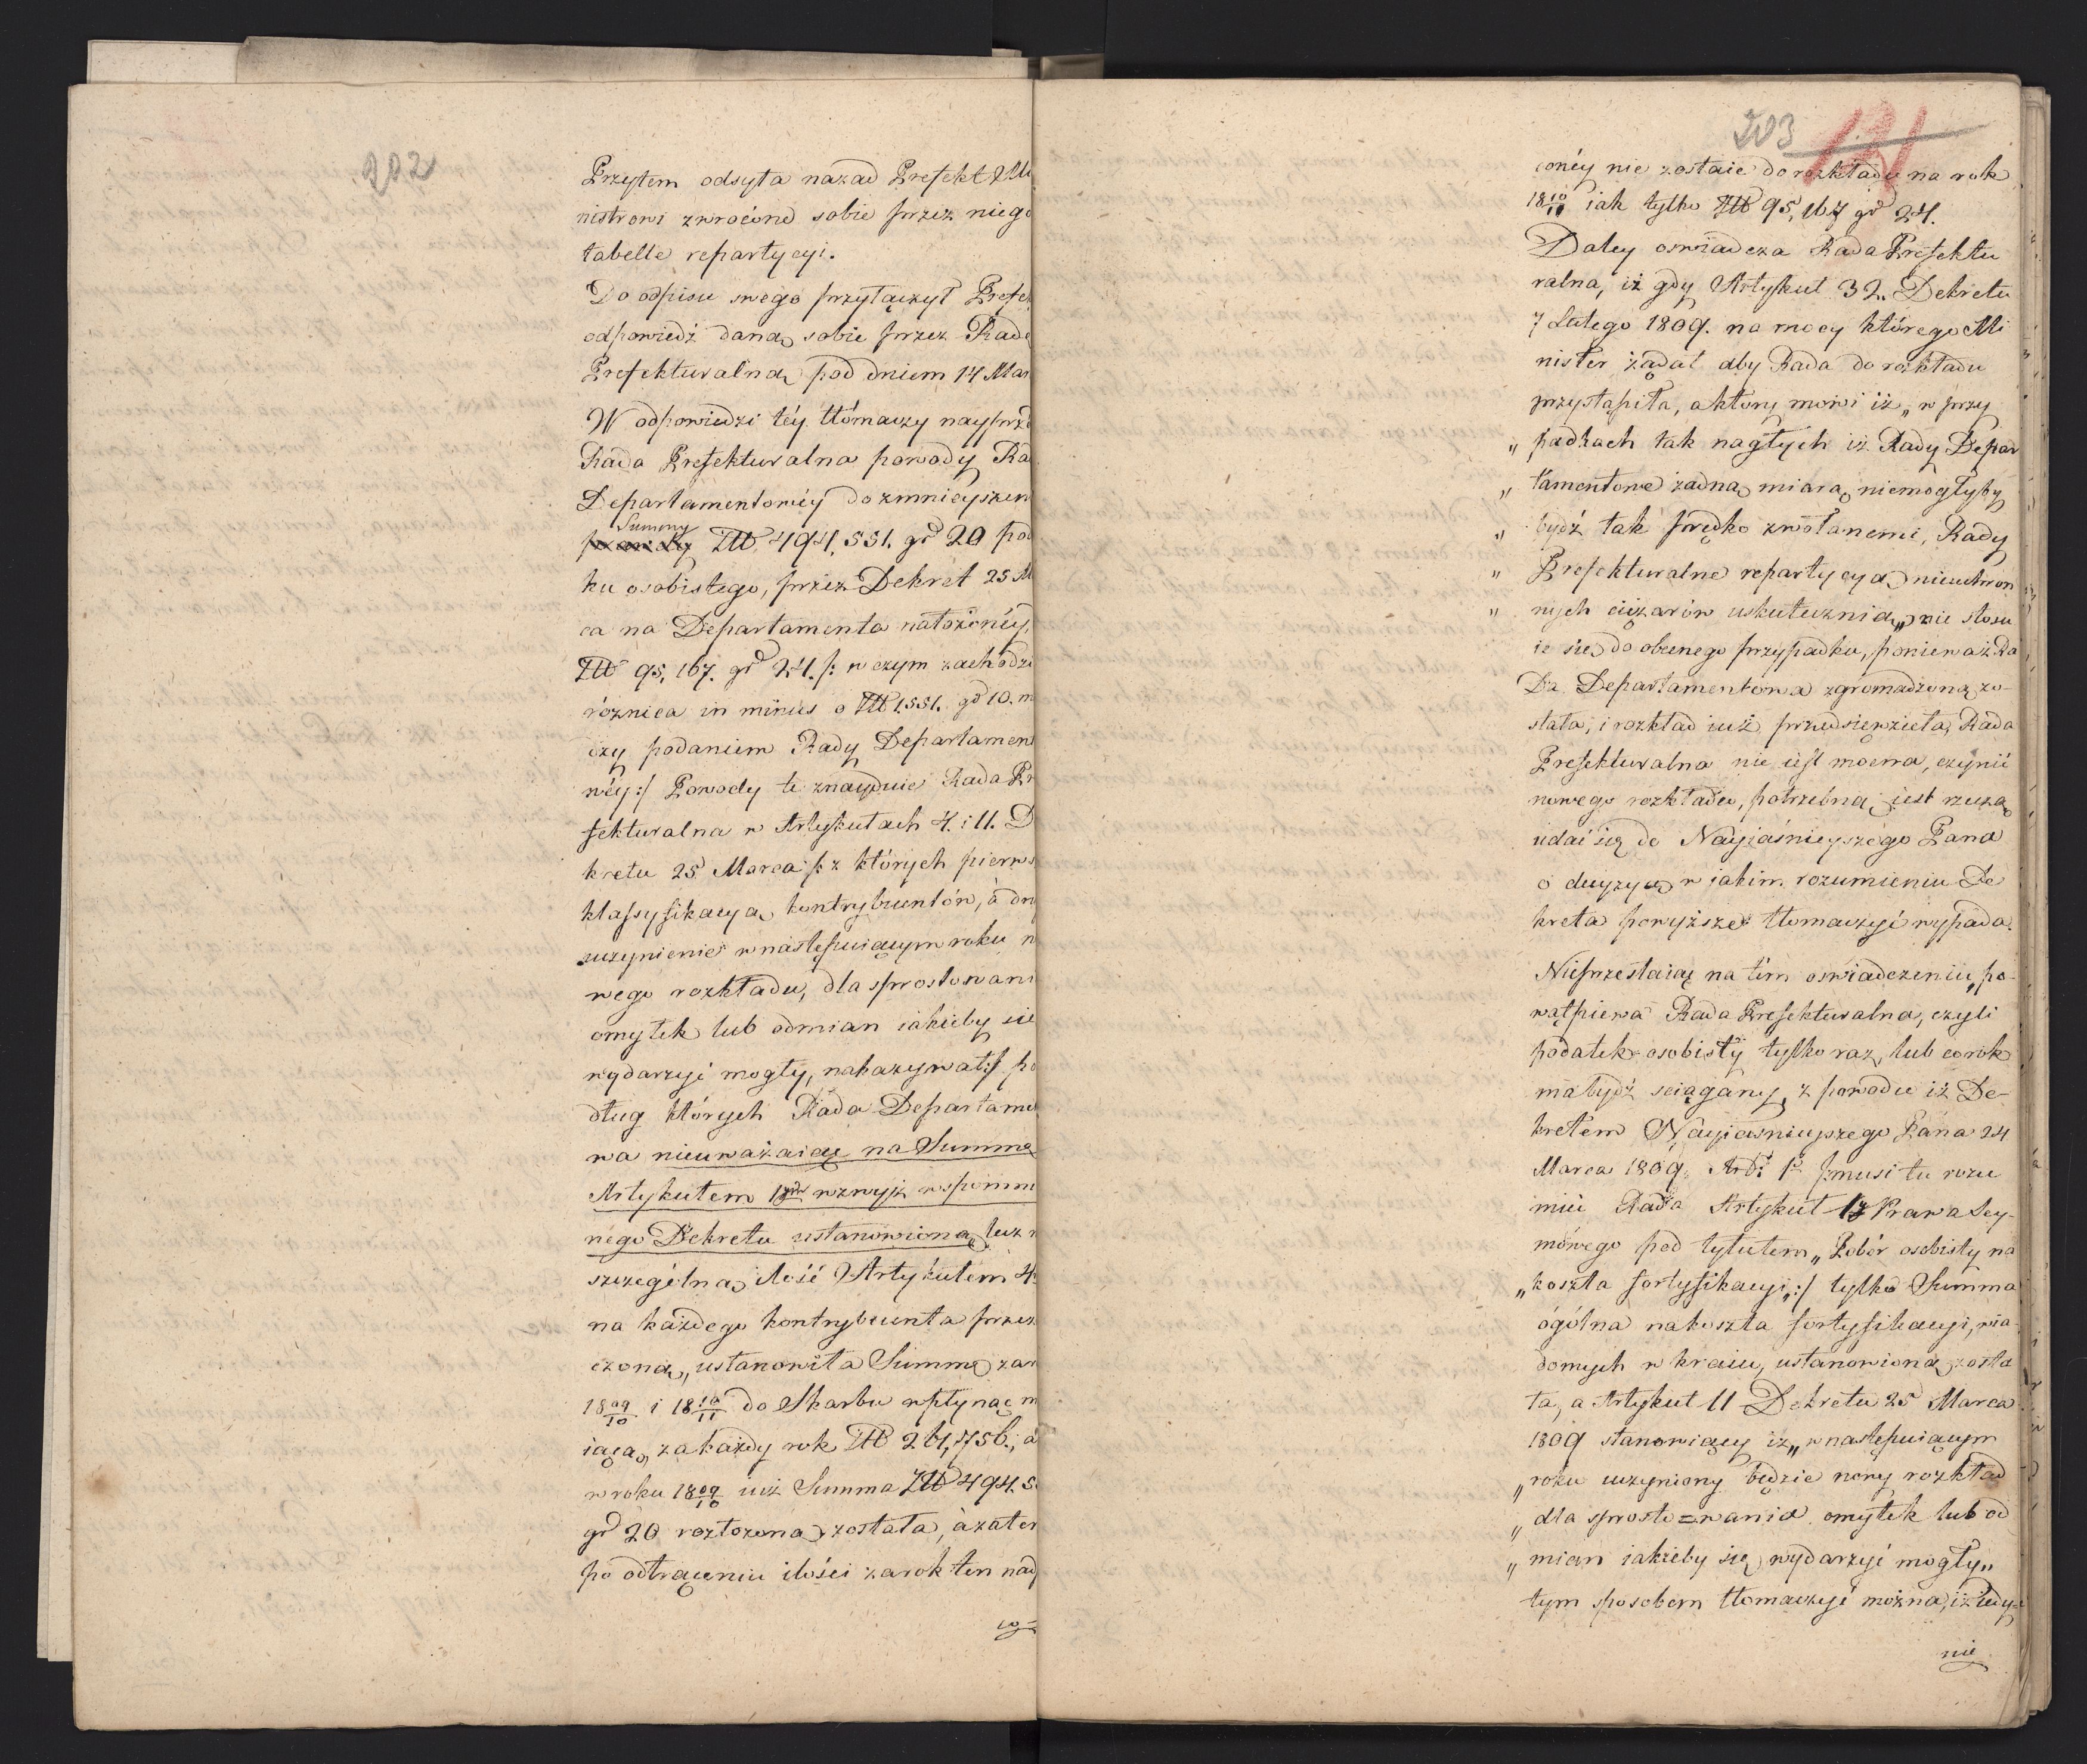 202
Przytem odsyła nazad Prefekt Mi
nistrowi zwrócone sobie przez niego
tabelle repartycyi.
Do odpisu swego przyłączył Prefek
odpowiedź daną sobie przez Radę
Prefekturalną pod dniem 14 Mar
W odpowiedzi téy tłómaczy nayprzó
Rada Prefekturalna powody Ra
Departamentowéy do zmnieyszen
Summy
Złł 494,551. gr 20 pod
ku osobistego, przez Dekret 25 M
ca na Departamenta nałożonéy,
Złł 95,167. gr 24. /: w czym zachodzi
róznica in minus o Złł 1,551. gr 10. m
dzy podaniem Rady Departament
wéy :/ Powody te znayduie Rada Pr
fekturalna w Artykułach 4. i 11. D
kretu 25 Marca /: z których pierws
klassyfikacyą kontrybuentów, à dru
uczynienie w następuiącym roku n
wego rozkładu, dla sprostowani
omyłek lub odmian iakieby się
wydarzyć mogły, nakazywał :/ po
dług których Rada Departamen
wa nieuważaiąc na Summę
Artykułem 1szym wzwyż wspomni
nego Dekretu ustanowioną, lecz n
szczególną ilość Artykułem 4
na każdego kontrybuenta przezn
czoną, ustanowiła Summę zar
18 09/10 i 18 10/11 do Skarbu wpłynąć m
iącą, za każdy rok Złł 261,756., à
w roku 18 09/10 iuż Summa Złł 494,5
gr 20 rozłożona została, à zatem
po odtrąceniu ilości za rok ten nad
co=
203
121
conéy nie zostaie do rozkładu na rok
18 10/11 iak tylko Złł 95,167 gr 24.
Daley oswiadcza Rada Prefektu
ralna, iż gdy Artykuł 32. Dekretu
7 Lutego 1809. na mocy którego Mi
nister żądał aby Rada do rozkładu
przystąpiła, a który mówi iż „w przy
„padkach tak nagłych iż Rady Depar
„tamentowe żadną miarą niemogłyby
„bydź tak prędko zwołanemi, Rady
„Prefekturalne repartycyą nieuchron
„nych ciężarów uskutecznią„ nie stosu
ie się do obecnego przypadku, poniewaź Ra
da Departamentowa zgromadzoną zo-
stała, i rozkład iuż przedsięwzięła, Rada
Prefekturalna nie iest mocna, czynić
nowego rozkładu, potrzebną iest rzeczą
udać się do Nayjaśnieyszégo Pana
o decyzyą w iakim rozumieniu De
kreta powyższe tłomaczyć wypada.
Nieprzestaiąc na tém oswiadczeniu, po-
wątpiewa Rada Prefekturalna, czyli
podatek osobisty tylko raz, lub co rok
ma bydź sciągany, z powodu iż De-
kretem Nayiasnieyszego Pana 24
Marca 1809. Art: 1º /: musi tu rozu
mieć Rada Artykuł 17 Prawa Sey-
mówego pod tytułem „Pobór osobisty na
„koszta fortyfikacyi„ :/ tylko Summa
ógólna na koszta fortyfikacyi, wia
domych w kraiu, ustanowioną zosta
ła, a Artykuł 11 Dekretu 25 Marca
1809 stanowiący iż „w następuiącym
„roku uczyniony będzie nowy rozkład
„dla sprosto=wania omyłek lub od
„mian iakieby się wydarzyć mogły„
tym sposobem tłomaczyć można, iż iedy=
nie